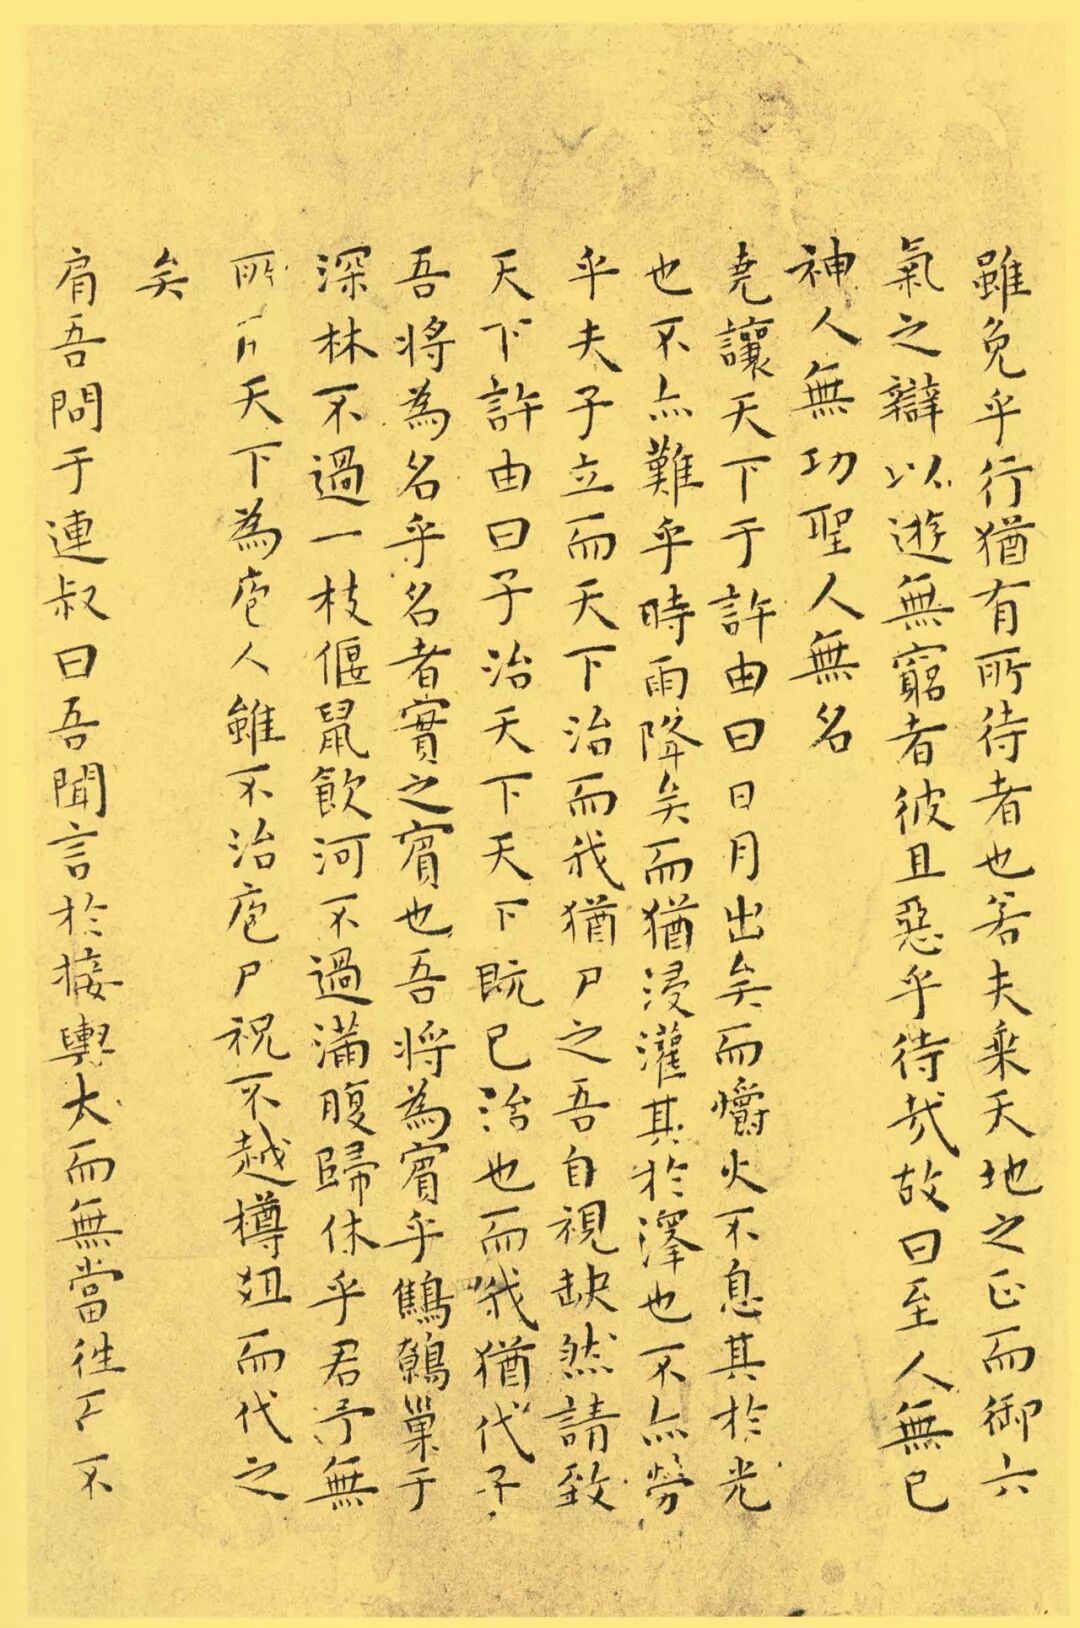 雖免乎行猶有所待者也若夫乘天地之正而御六
氣之辯以遊無窮者彼且惡乎待哉故曰至人無已
神人無功聖人無名
堯讓天下于許由曰日月出矣而爝火不息其於光
也不亦難乎時雨降矣而猶浸灌其於澤也不亦勞
乎夫子立而天下治而我猶尸之吾自視缺然請致
天下許由曰子治天下天下既已治也而我猶代子
吾將為名乎名者實之賓也吾將為賓乎鷦鷯巢于
深林不過一枝偃鼠飲河不過滿腹歸休乎君予無
所用天下為庖人雖不治庖尸祝不越樽俎而代之
矣
肩吾問于連叔曰吾聞言於接輿大而無當往而不